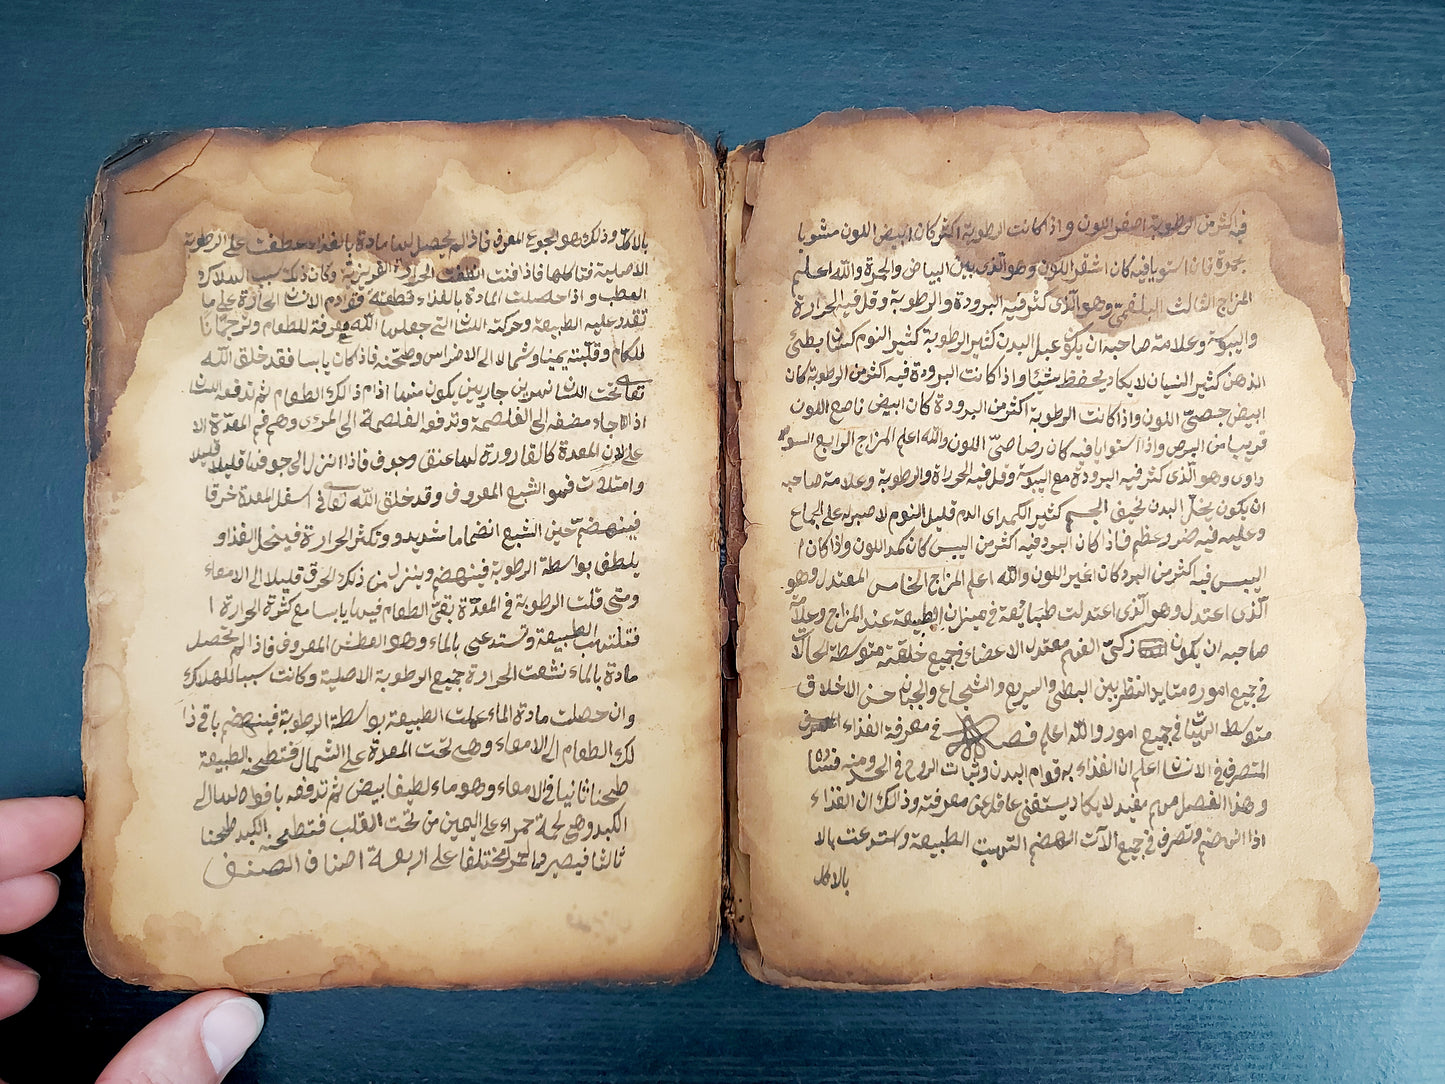 فيه كثر من الرطوبة اصفر اللون واذا كانت الرطوبة اكثر كان ابيض اللون مشوبا
بحمرة فان استويا فيه كان اشقر اللون وهو الذى بين البياض والحمرة والله اعلم
المزاج الثالث البلغمى وهو الذى كثر فيه البرودة والرطوبة وقل فيه الحرارة
واليبوسة وعلامة صاحبه ان يكون عبل البدن كثير الرطوبة كثير النوم بطئ
الذهن كثير النسيان لا يكاد يحفظ شيئا واذا كانت البرودة فيه اكثر من الرطوبة كان
ابيض جصىّ اللون واذا كانت الرطوبة اكثر من البرودة كان ابيض ناصع اللون
قريبا من البرص واذا استوايا فيه كان رصاصىّ اللون والله اعلم المزاج الرابع السو
داوى وهو الذى كثر فيه البرودة مع اليبوسة وقل فيه الحرارة والرطوبة وعلامة صاحبه
ان يكون البدن نحيف الجسم كثير الكمد اى الدم قليل النوم لا صبر له على الجماع
وعليه فيه ضرر عظم فاذا كان البرد فيه اكثر من اليبس كان كمد اللون واذا كان ا
اليبس فيه اكثر من البرد كان اغبر اللون والله اعلم المزاج الخامس المعتدل وهو
الذى اعتدل وهو الذى اعتدلت طبايعه فى ميزان الطبيعة عند المزاج وعلامة
صاحبه ان يكون زكىّ الفهم معتدل الاعضاء فى جميع خلقته متوسطة الحالات
فى جميع اموره متايد النظر بين البطئ والسريع والشجاع والجبان حسن الاخلاق
متوسط فى جميع امور والله اعلم فصل فى معرفة الغذاء
المتصرف فى الانسان اعلم ان الغذاء به قوام البدن وثبات الروح فى الجسد ومنه
وهذا الفصل مهم مفيد لا يكاد يستغنى عاقل عن معرفته وذلك ان الغذاء
اذا انهضم وتصرف فى جميع الآت الهضم الطبيعة واستدعت بالا
بالاكل
بالاكل وذلك هو الجوع المعروف فاذا لم يحصل لها مادة بالغذاء عطفت على الرطوبة
الاصلية فتاكلها فاذا فنت الحرارة الغريزية وكان ذلك سبب الهلاك
العطب واذا حصلت المادة بالغذاء قطعته قوادم الاسنان الحادة على ما
تقدر عليه الطبيعة وحركة اللسان التى جعلها الله معرفة للطعام وترجمانا
للكلام وقلبته يمينا وشمالا الى الاضراس وطحنه فاذا كان يابسا فقد خلق الله
تعالى تحت اللسان نهرين جاريين يكون منهما ادام ذالك الطعام ثم تدفعه اللسان
اذا جاء مضغه الى الغلصمة وتدفعه الغلصمة الى المرىء وهو فم المعدة الا
على لان المعدة كالقارورة لها عنق وجوف فاذا انزل الى جوفها قليلا قليلا
وامتلات فهو الشبع المعروف وقد خلق الله تعالى فى اسفل المعدة خرقا
فينهضم حين الشبع انضماما شديدو وتكثر الحرارة فينحل الغذاو
يلطف بواسطة الرطوبة فينهضم وينزل من ذلك الخرق قليلا الى الامعاء
ومتى قلت الرطوبة فى المعدة بقى الطعام فيها يابسا مع كثرة الحرارة ا
فتلتهب الطبيعة وتستدعى بالماء وهو العطش المعروف فاذا لم تحصل
مادة بالماء نشفت الحرارة جميع الرطوبة الاصلية وكانت سببا للهلاك
وان حصلت مادة الماء عملت الطبيعة بواسطة الرطوبة فينهضم باقى ذا
لك الطعام الى الامعاء وهى تحت المعدة على الشمال فتطبخه الطبيعة
طبخا ثانيا فى الامعاء وهو ماء لطيف ابيض ثم تدفعه بافواه الى
الكبد وهى لحمة حمراء على اليمين من تحت القلب فتطبخه الكبد طبخا
ثالثا فيصير مختلفا على اربعة اصناف الصنف